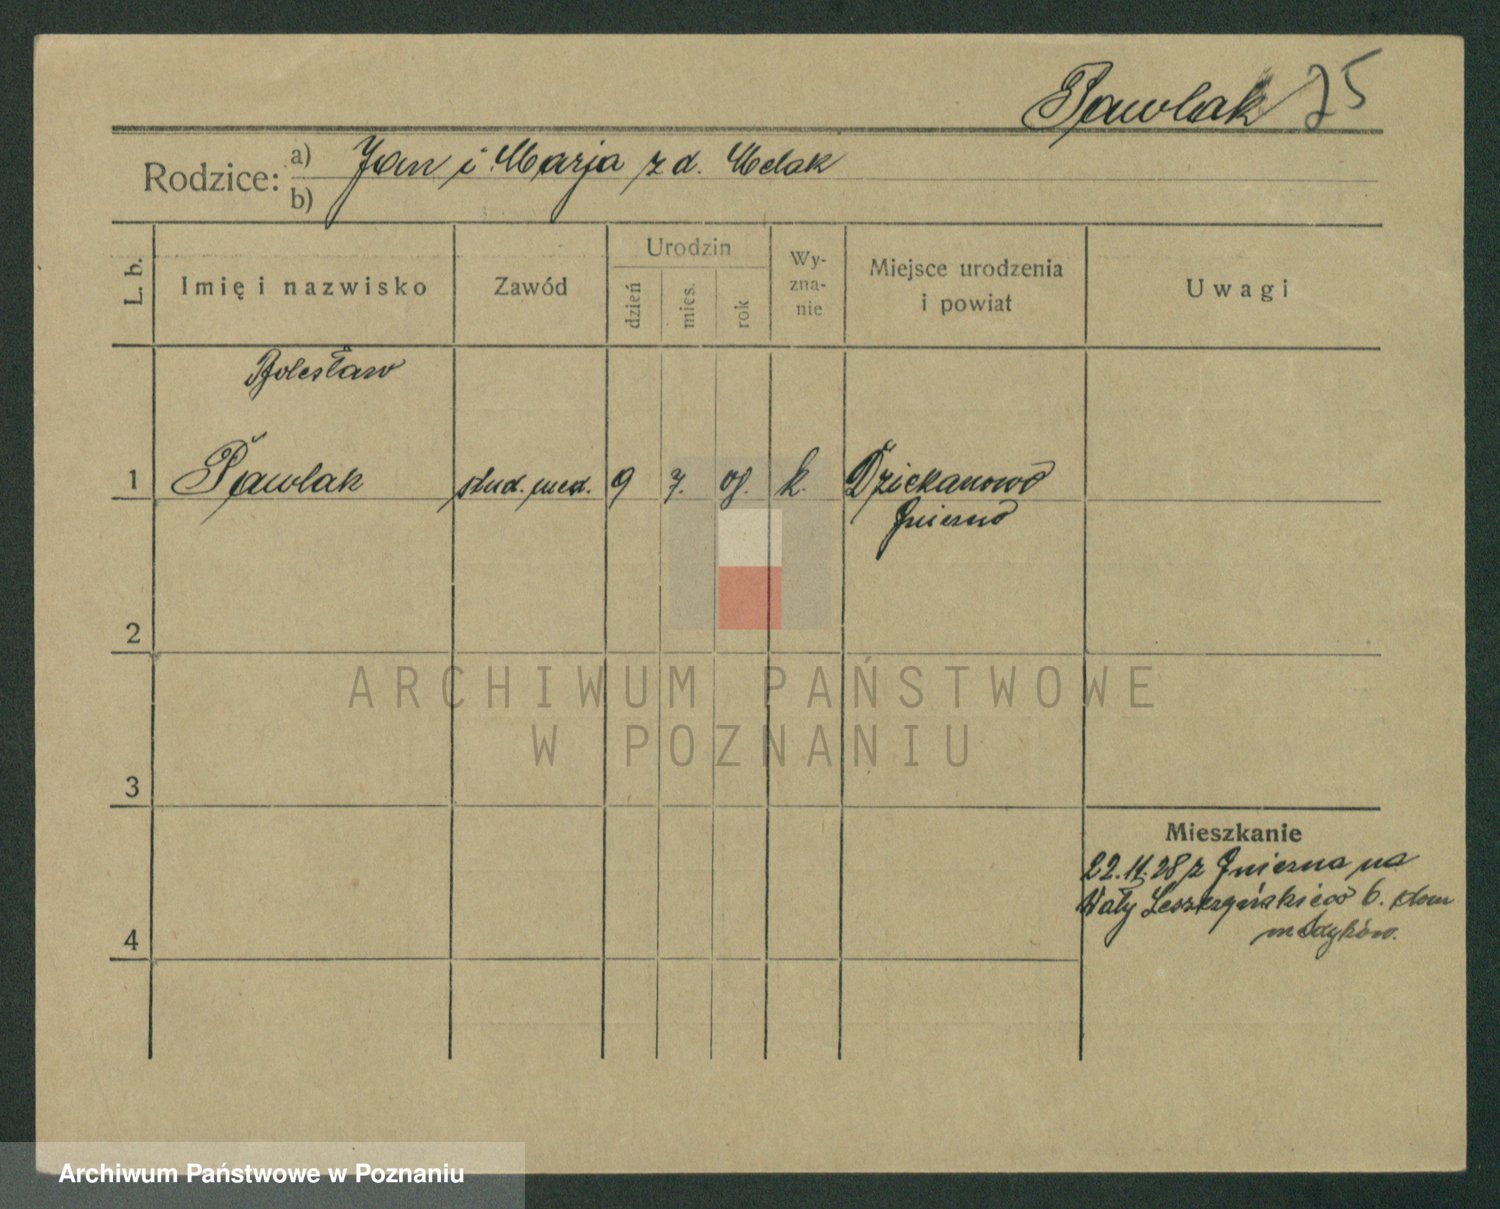 Pawlak 75
Rodzice: a) Jan i Marja z d. Melak
b)
L. b. Imię i nazwisko Zawód Urodzin dzień mies. rok Wy-zna-nie Miejsce urodzenia i powiat Uwagi
Bolesław
1 Pawlak stud. med. 9 7. 08. k. Dziekanowo
Gniezno
2
ARCHIWUM PAŃSTWOWE
W POZNANIU
3
Mieszkanie
22.11.28 z Gniezna na
Wały Leszczyńskiego 6. dom
4 medyków.
Archiwum Państwowe w Poznaniu